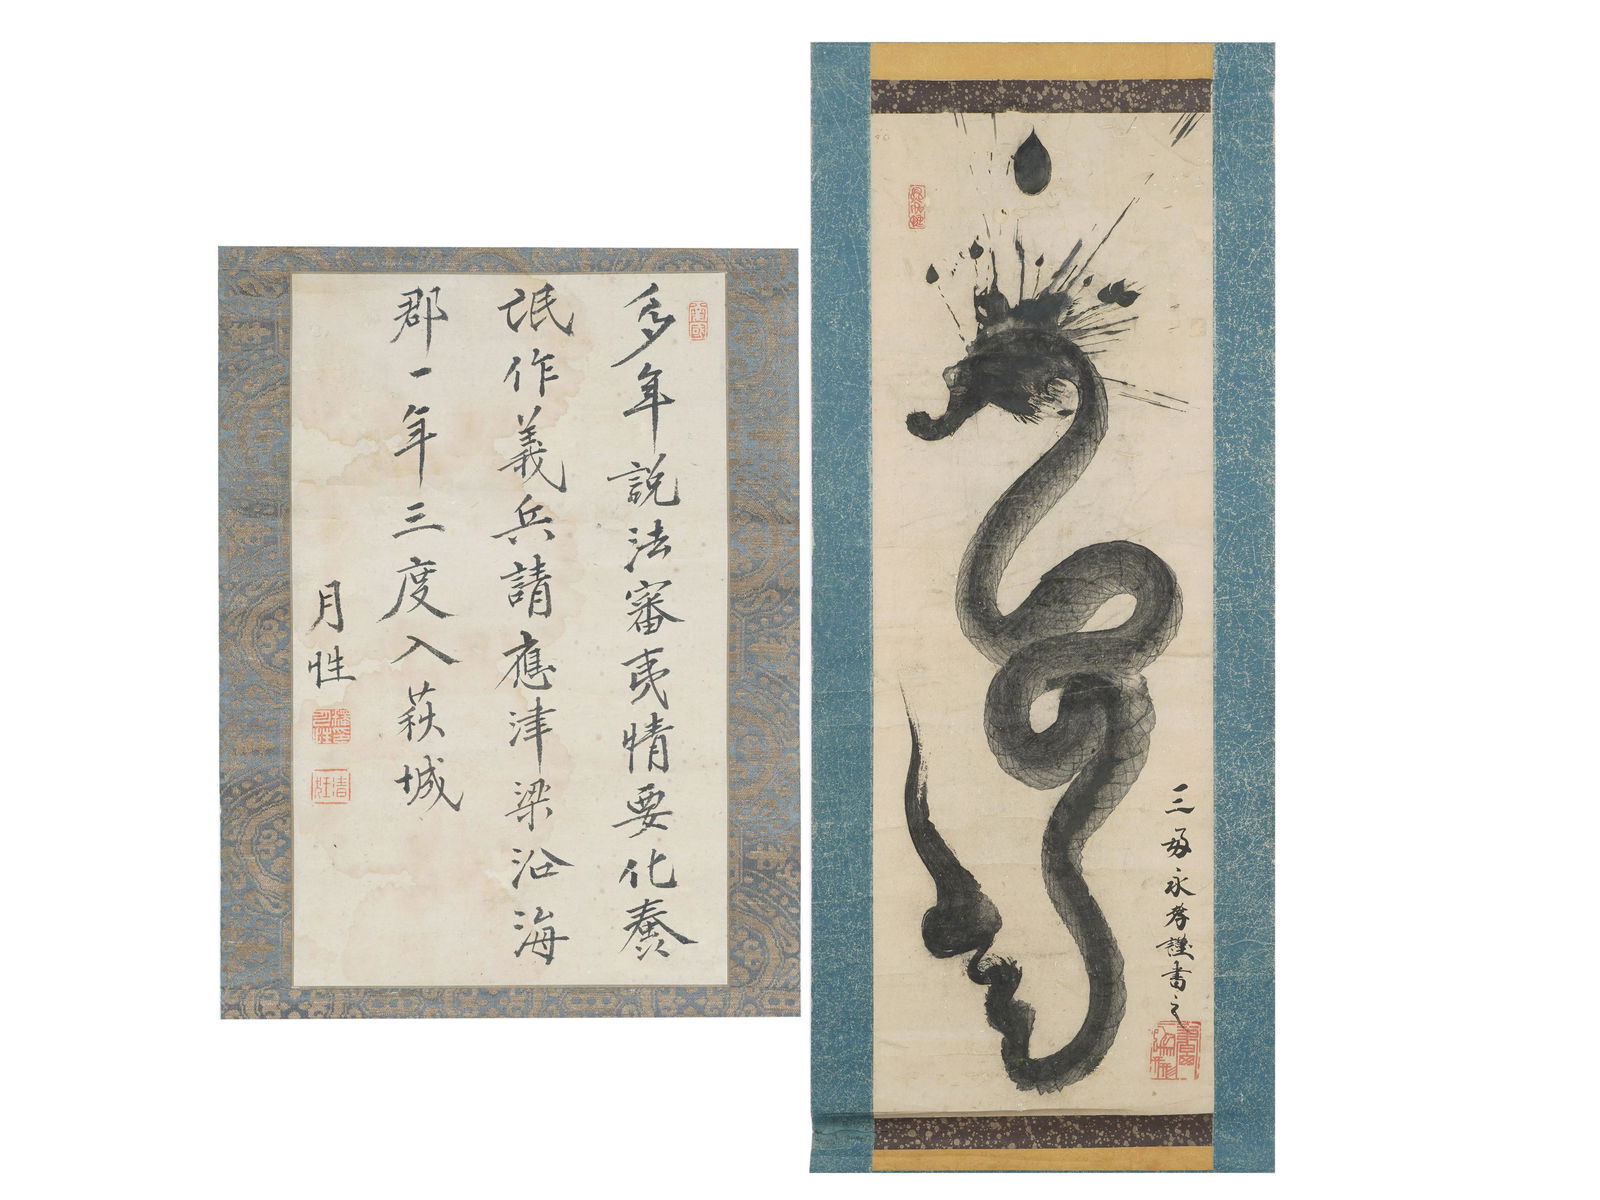 多年説法審夷情要化蠢
氓作義兵請應津梁沿海
郡一年三度入萩城
月性
三永孝謹書之